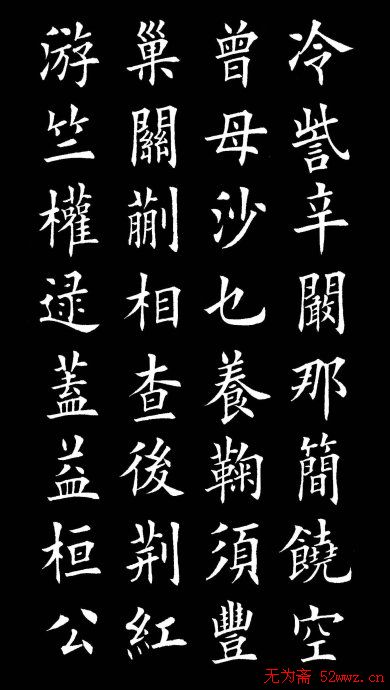 冷訾辛闞那簡饒空
曾母沙乜養鞠須豐
巢關蒯相查後荊紅
游竺權逯蓋益桓公
无为斋 52wwz.cn